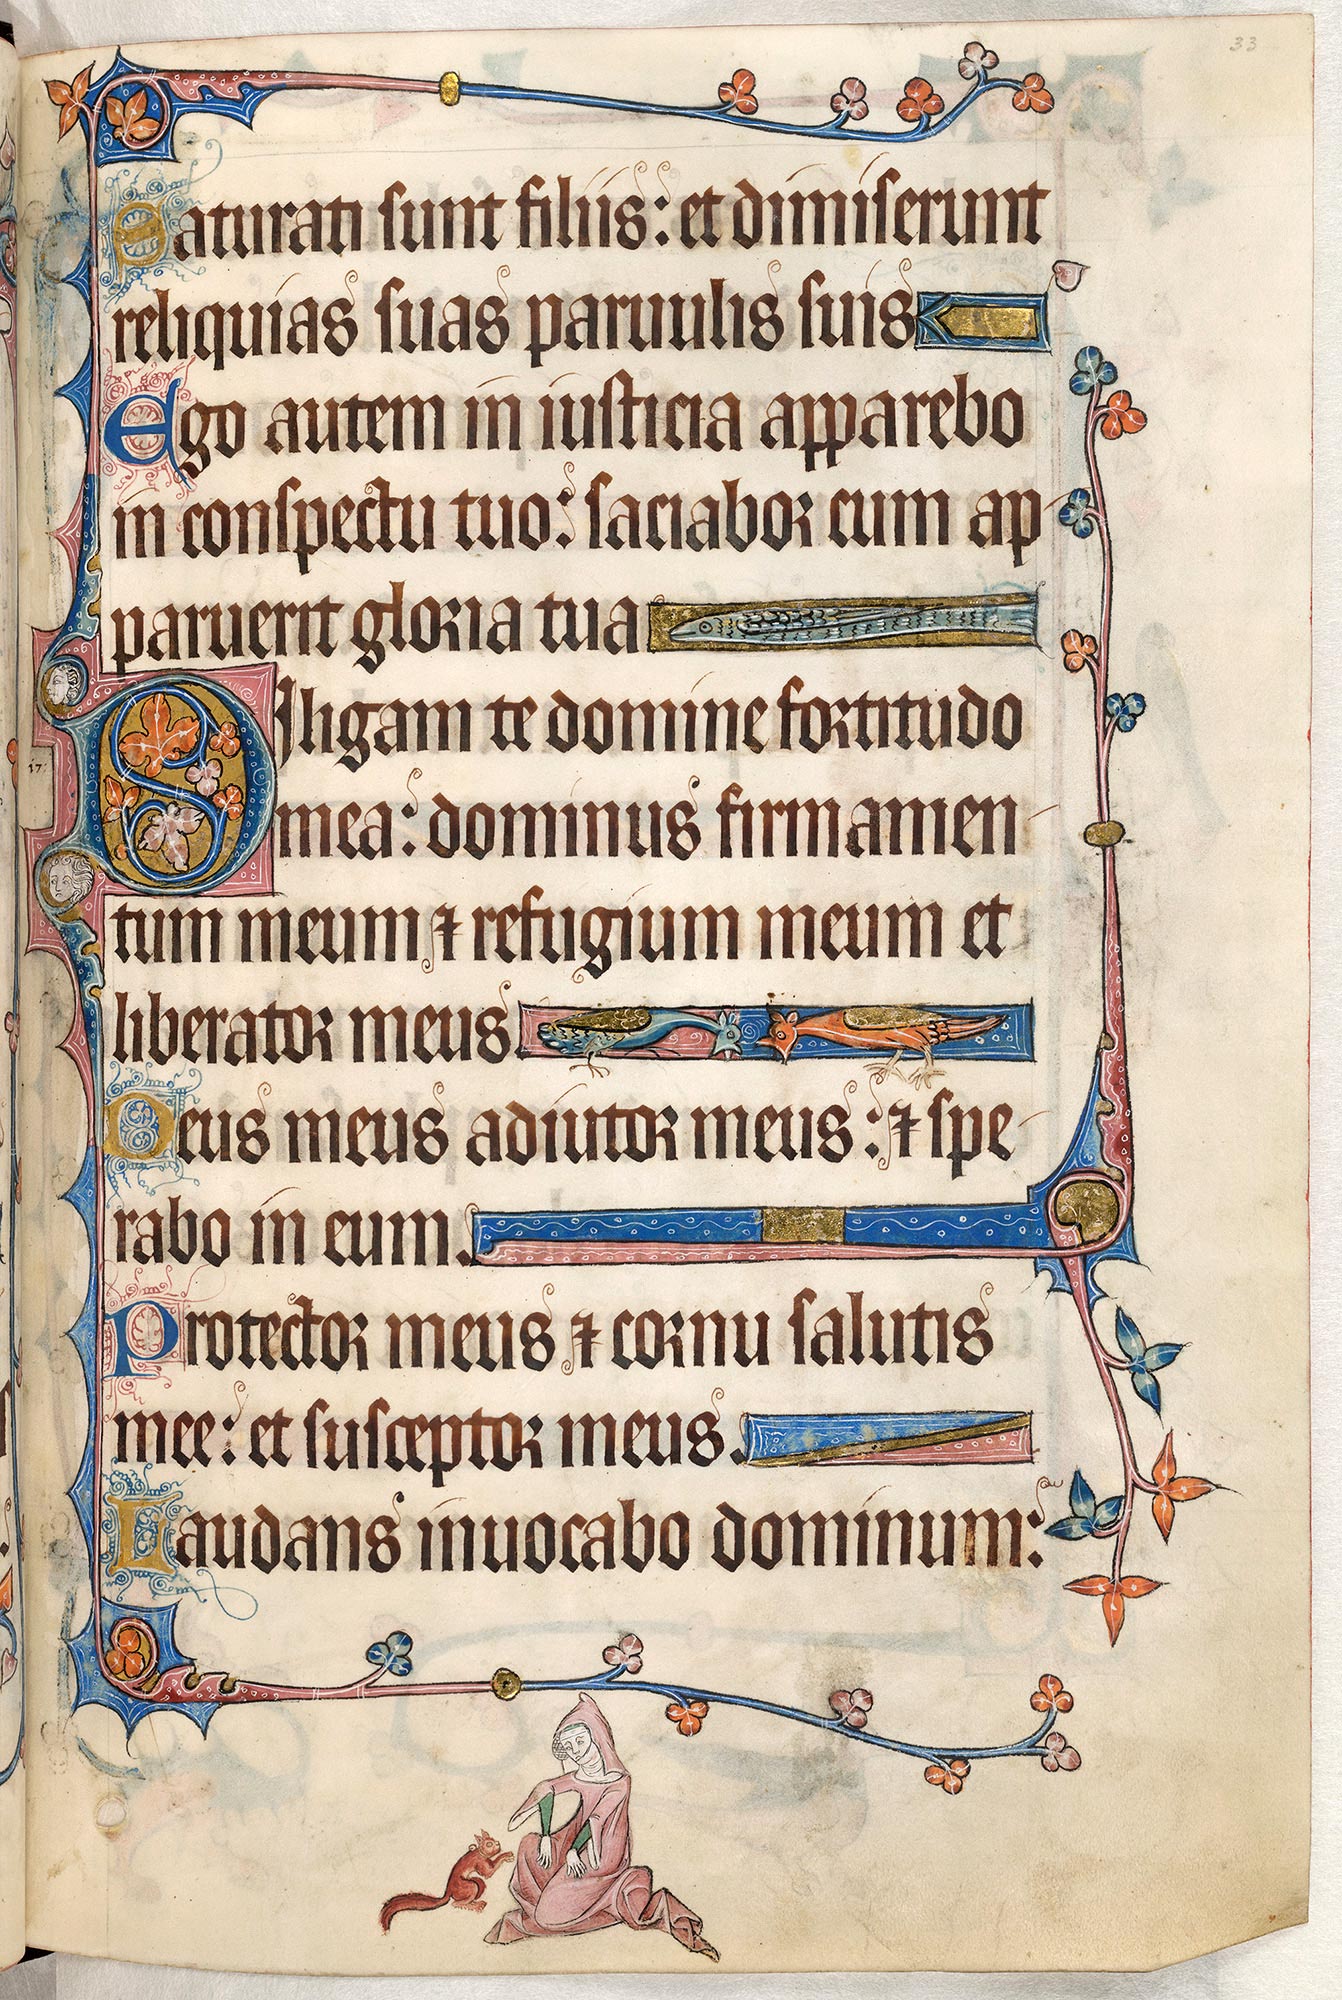 33
Saturati sunt filiis: et dimiserunt
reliquias suas paruulis suis
Ego autem in iusticia apparebo
in conspectu tuo: saciabor cum ap
paruerit gloria tua
Diligam te domine fortitudo
17:
mea: dominus firmamen
tum meum ⁊ refugium meum et
liberator meus.
Deus meus adiutor meus: ⁊ spe
rabo in eum.
Protector meus ⁊ cornu salutis
mee: et susceptor meus.
Laudans inuocabo dominum: